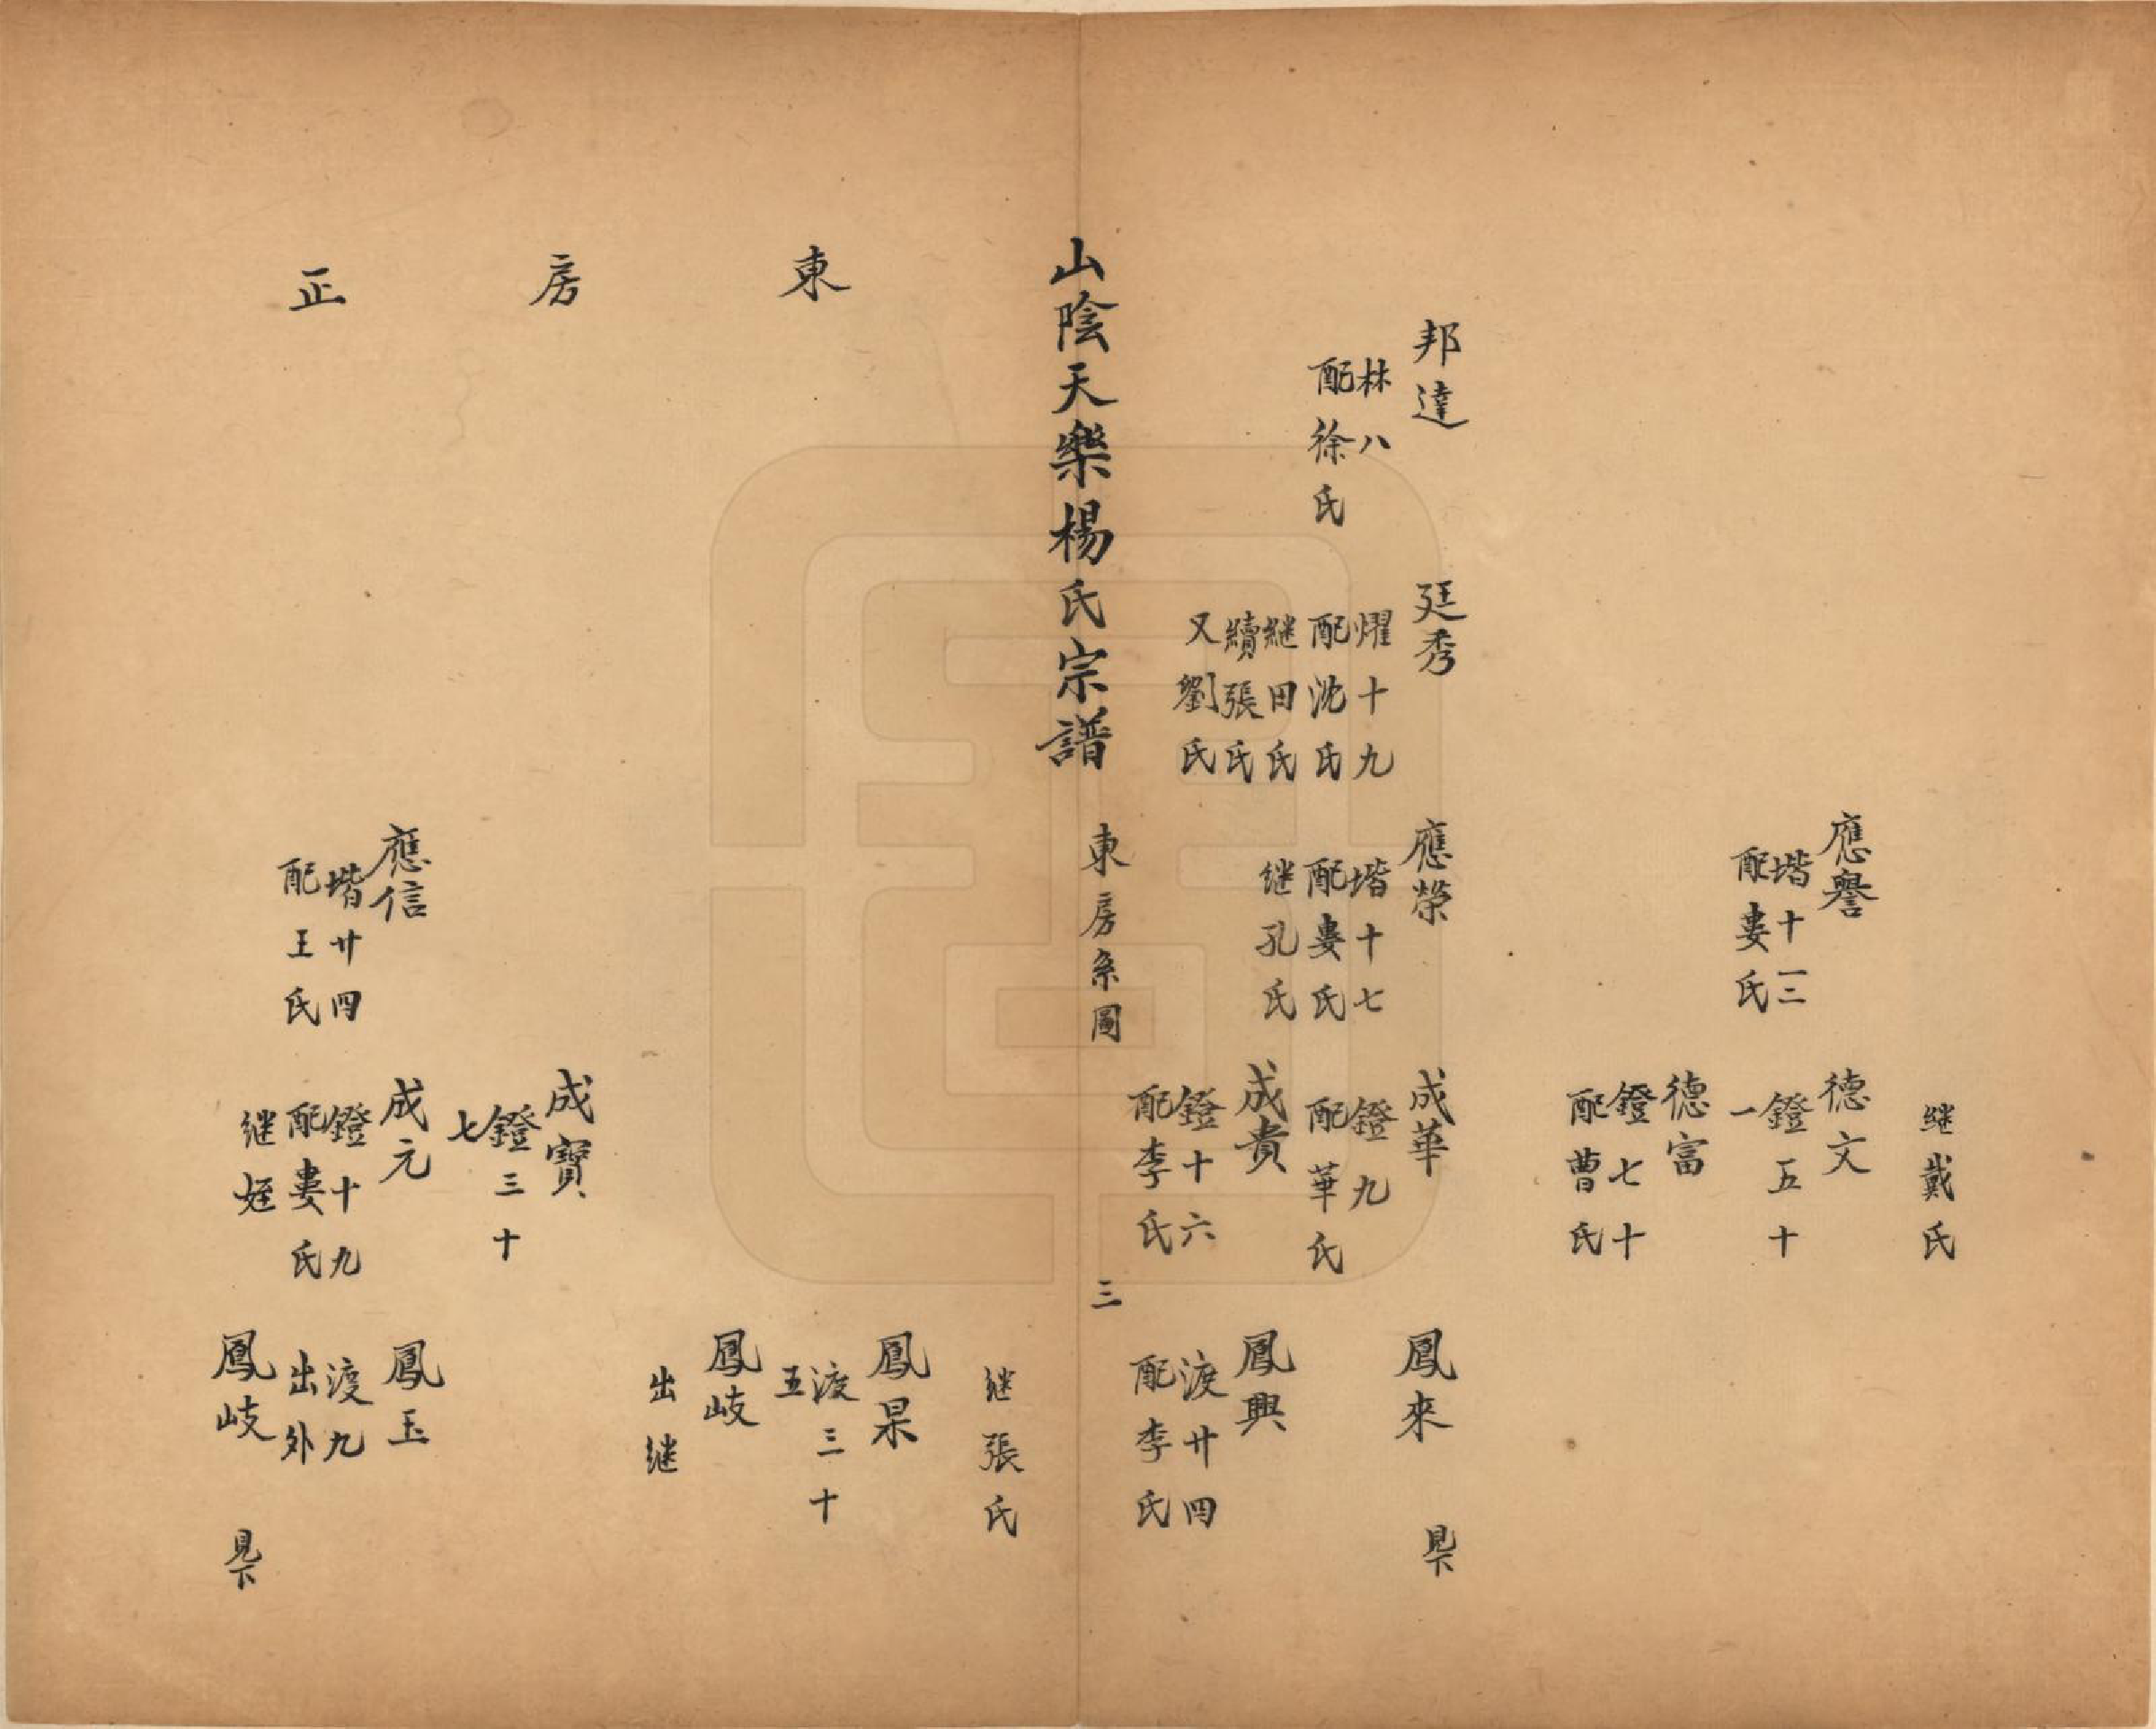 継戴氏
應譽
堦十三
配婁氏
德文
鐙五十
一
德富
鐙七十
配曹氏
邦達
林八
配徐氏
廷秀
燿十九
配沈氏
継田氏
續張氏
又劉氏
應榮
堦十七
配婁氏
継孔氏
成華
鐙九
配華氏
鳳來
見下
成貴
鐙十六
配李氏
鳳興
渡廿四
配李氏
山陰天樂楊氏宗譜
東房系圖
三
継張氏
東房正
鳳杲
渡三十
五
鳳岐
出継
成寶
鐙三十
七
應信
堦廿四
配王氏
成元
鐙十九
配婁氏
継姪
鳳玉
渡九
出外
鳳岐
見下